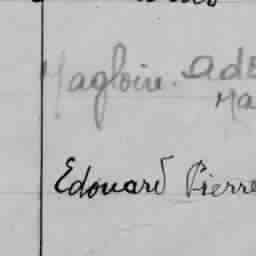 Magloire. Ade
Ma
Edouard Pierre